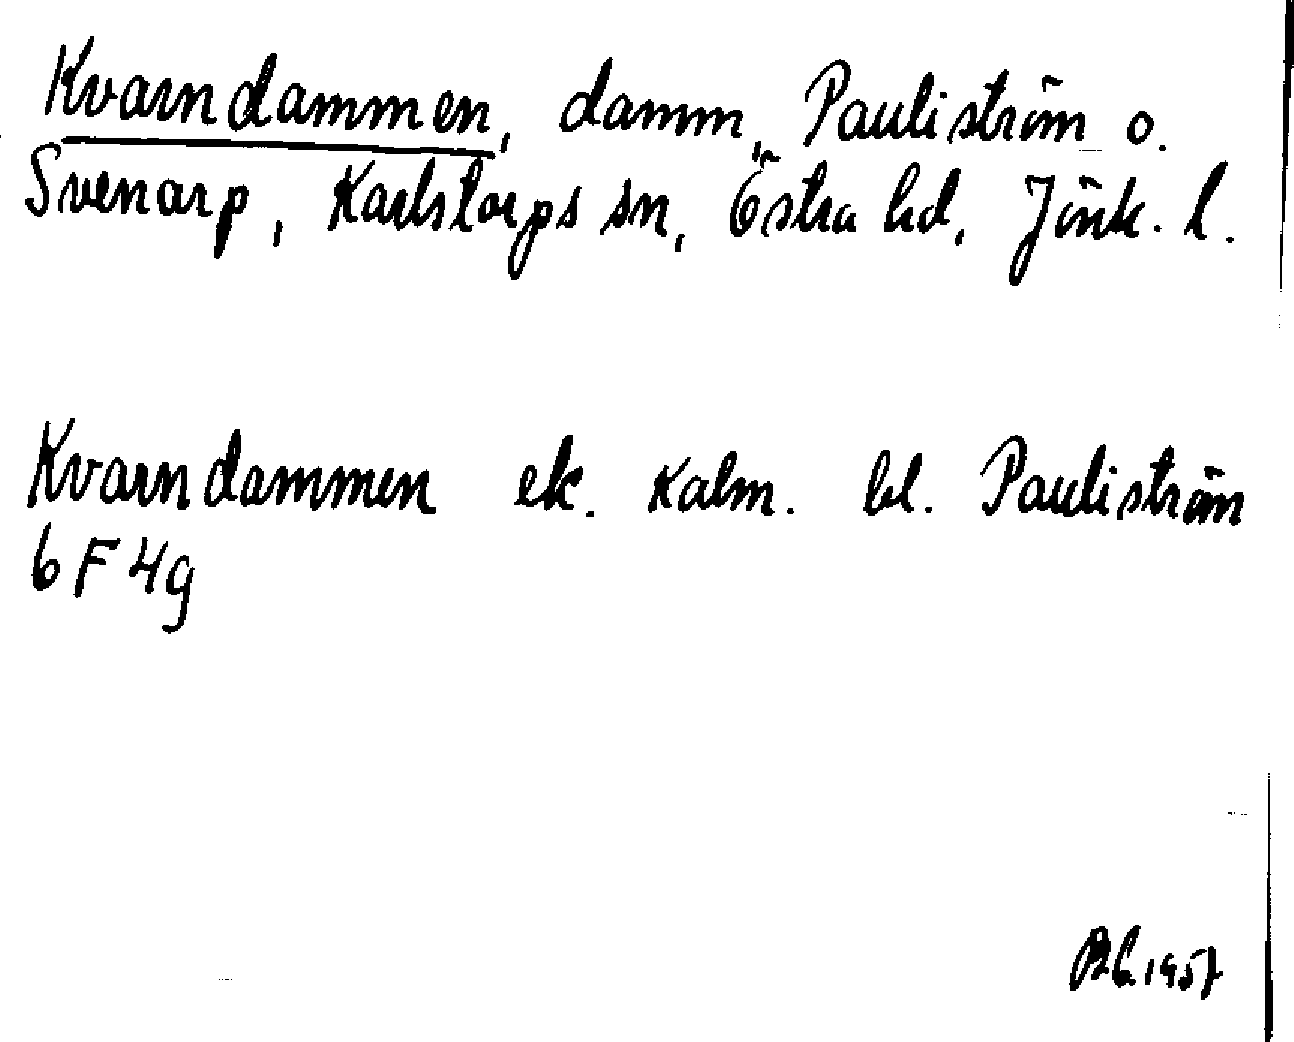 Kvarndammen, damm, Pauliström o.
Svenarp, Karlstorps sn, Östra hd, Jönk. l.
Kvarndammen ek. Kalm. bl. Pauliström
6F 4g
1957